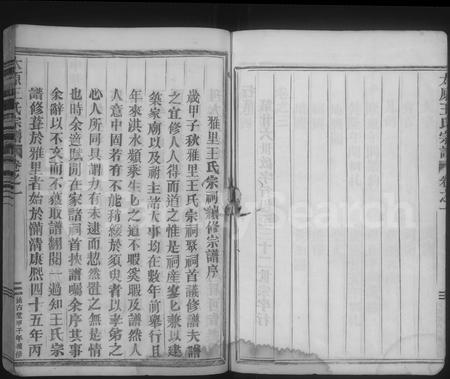 太原王氏宗譜 卷之一
雅里王氏宗祠續修宗譜序
歲甲子秋雅里王氏宗祠聚祠首議修譜夫譜
之宜修人人得而道之惟是祠產寥乜兼以建
築家廟以及祔主諸大事均在數年前舉行且
年來洪水頻乘生乜之道不暇奚暇及譜然人
人意中固若有不能稍緩於須臾者以孝弟之
心人所同具謂力有未逮而恝然置之無是情
也時余適賦閒在家諸祠首挾譜囑余序其事
余辭以不文而不獲取譜繙閱一過知王氏宗
譜修葺於雅里者始於滿清康熙四十五年丙
甲子年續修
太原王氏宗譜